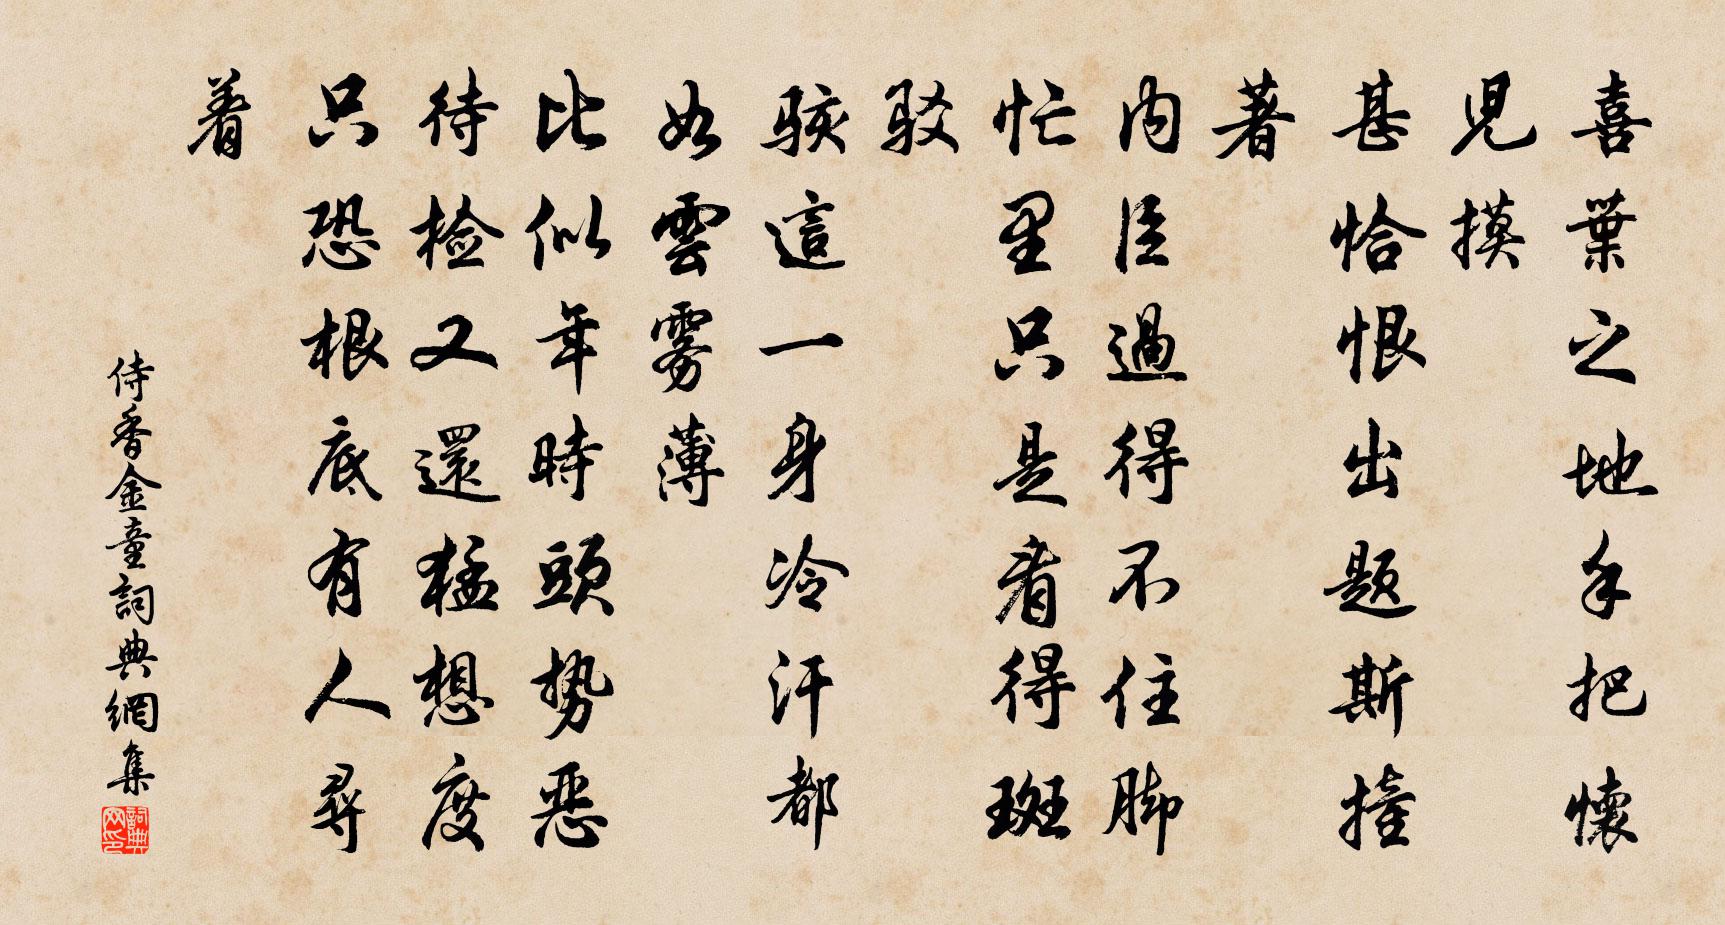 喜葉之地手把懷
児摸
甚恰恨出題斯撞
著
内臣過得不住脚
忙里只是看得斑
駁
駭這一身冷汗都
如雲雾薄
比似年時頭势恶
待检又還猛想度
只恐根底有人尋
着
侍香金童詞典網集
詞典网印